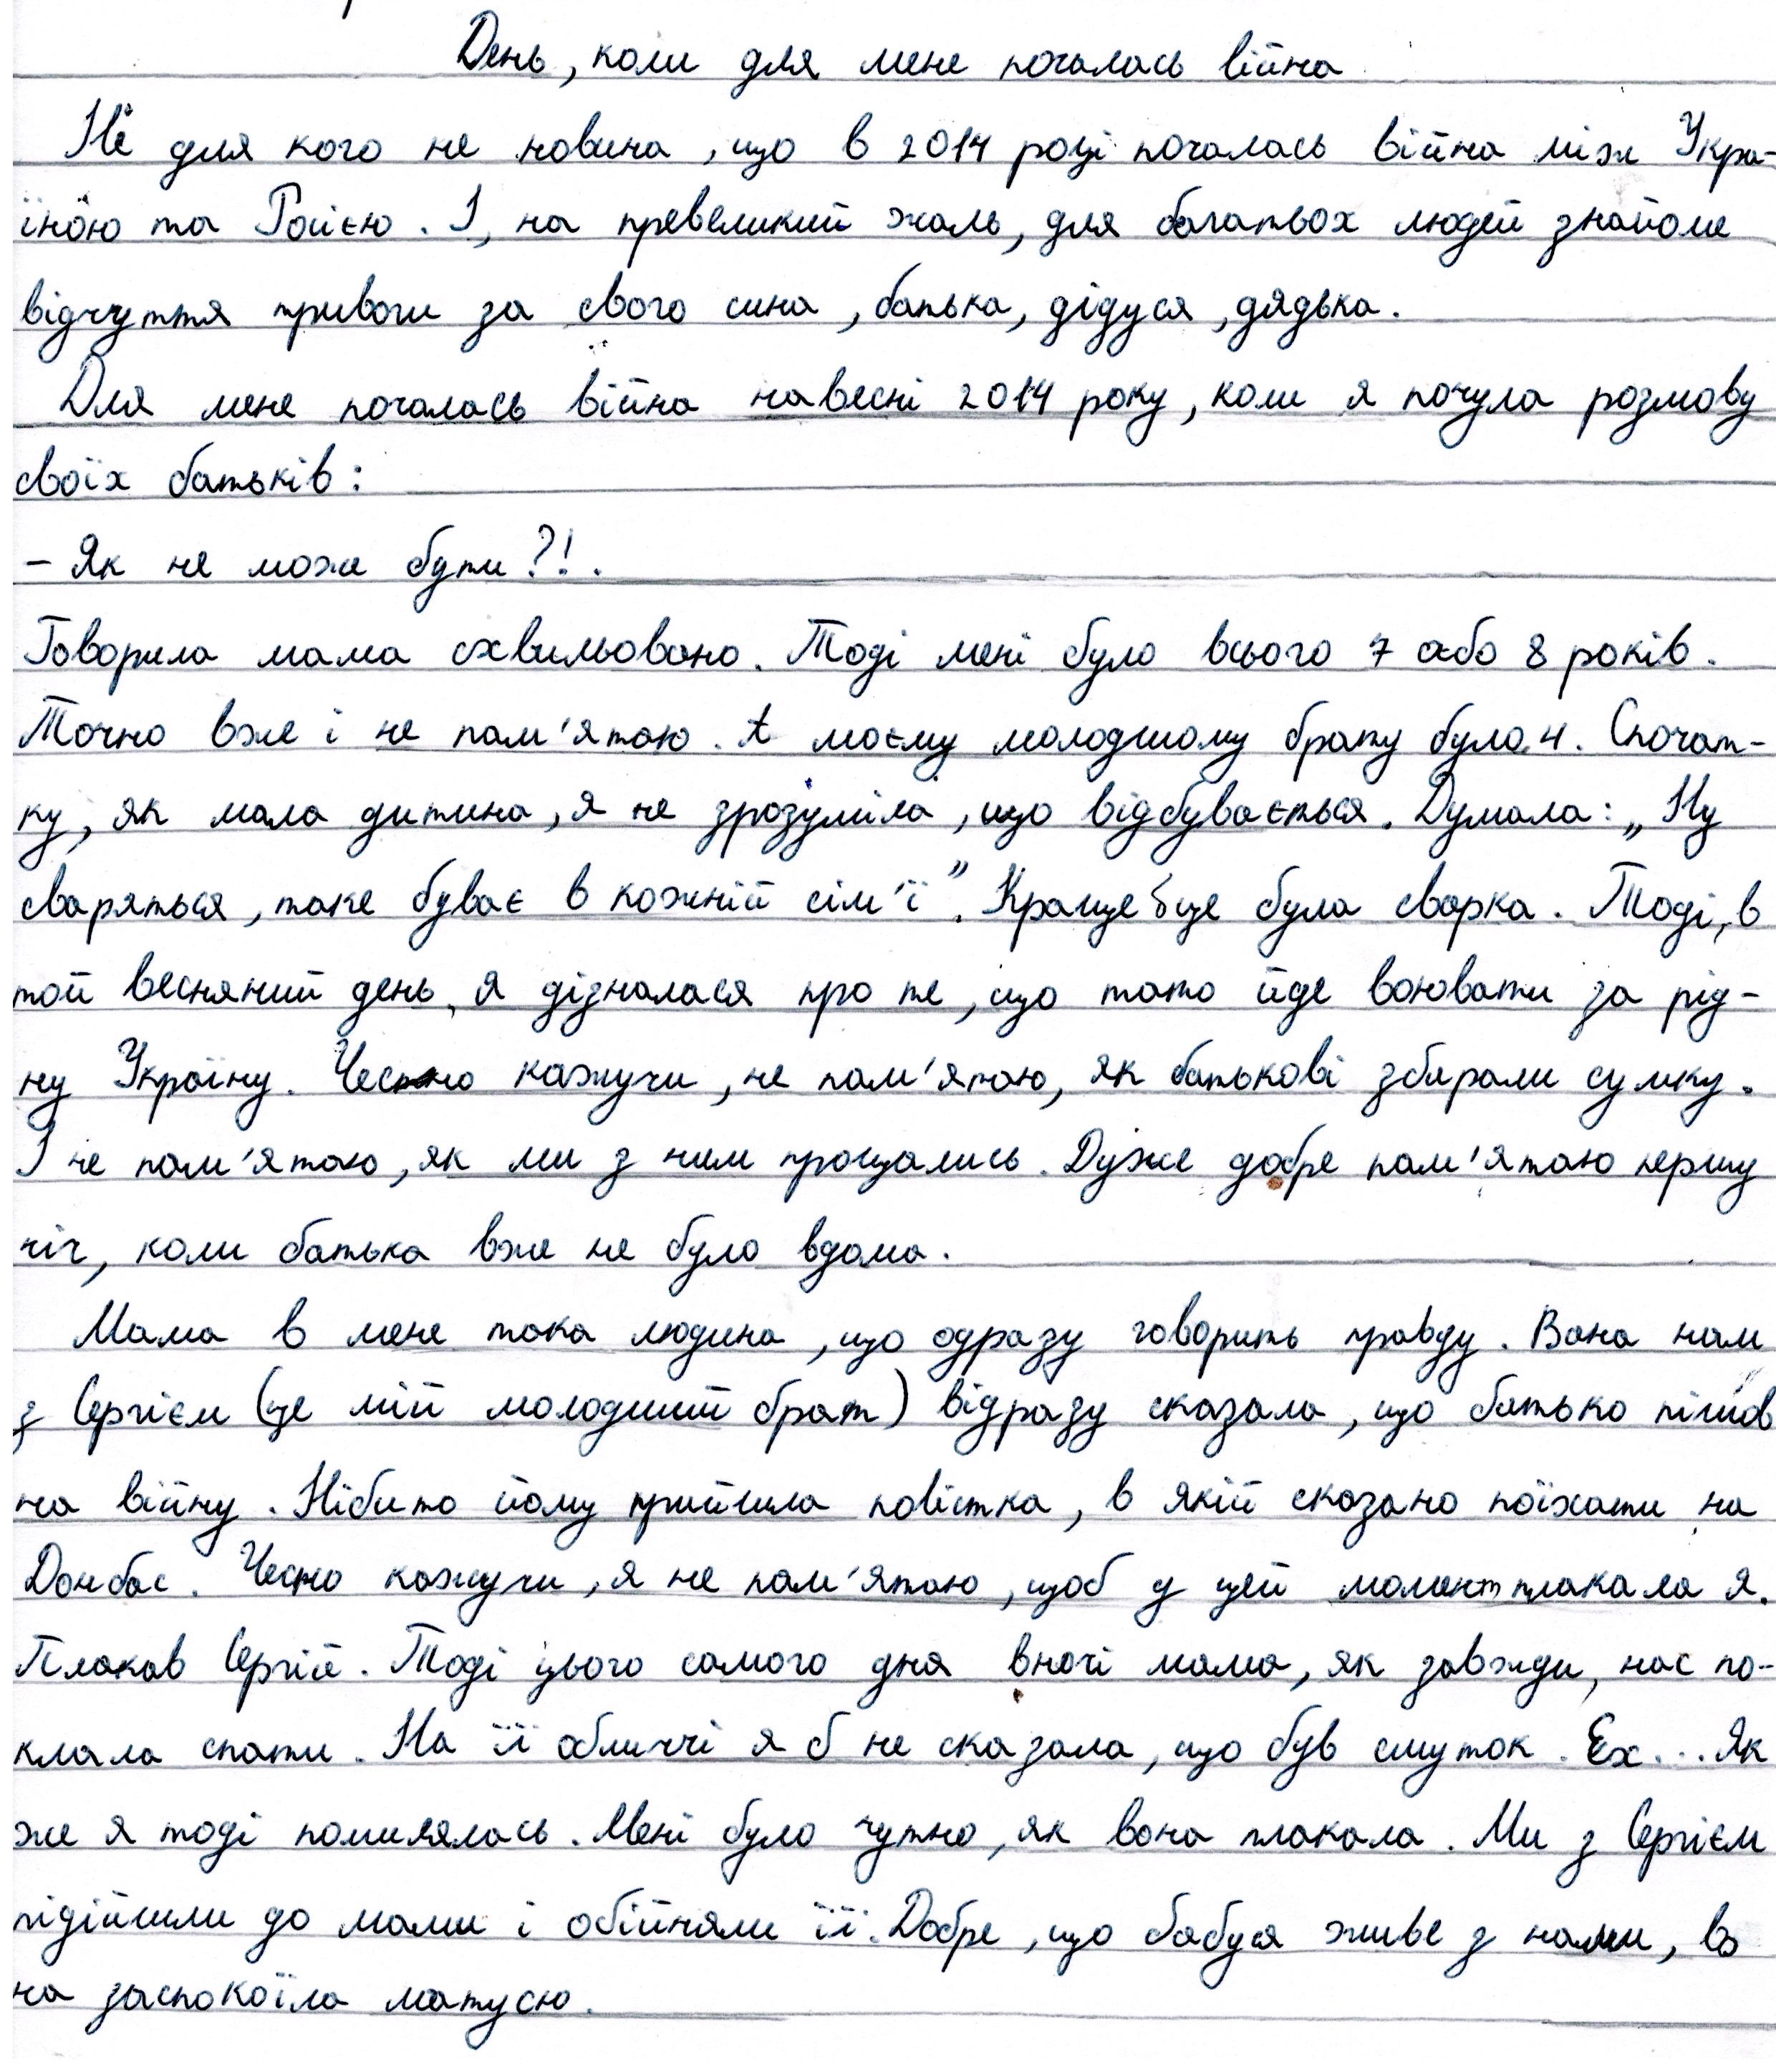 День, коли для мене почалась війна
Не для кого не новина, що в 2014 році почалась війна між Укра-
їною та Росією. І, на превеликий жаль, для багатьох людей знайоме
відчуття тривоги за свого сина, батька, дідуся, дядька.
Для мене почалась війна навесні 2014 року, коли я почула розмову
своїх батьків:
- Як не може бути?!.
Говорила мама схвильовано. Тоді мені було всього 7 або 8 років.
Точно вже і не пам'ятаю. А моєму молодшому брату було 4. Спочат-
ку, як мала дитина, я не зрозуміла, що відбувається. Думала: „Ну
сваряться, таке буває в кожній сім'ї". Краще б це була сварка. Тоді, в
той весняний день, я дізналася про те, що тато йде воювати за рід-
ну Україну. Чесно кажучи, не пам'ятаю, як батькові збирали сумку.
І не пам'ятаю, як ми з ним прощались. Дуже добре пам'ятаю першу
ніч, коли батька вже не було вдома.
Мама в мене така людина, що одразу говорить правду. Вона нам
з Сергієм (це мій молодший брат) відразу сказала, що батько пішов
на війну. Нібито йому прийшла повістка, в якій сказано поїхати на
Донбас. Чесно кажучи, я не пам'ятаю, щоб у цей момент плакала я.
Плакав Сергій. Тоді цього самого дня вночі мама, як завжди, нас по-
клала спати. На її обличчі я б не сказала, що був смуток. Ех... Як
же я тоді помилялась. Мені було чутно, як вона плакала. Ми з Сергієм
підійшли до мами і обійняли її. Добре, що бабуся живе з нами, во
на заспокоїла матусю.